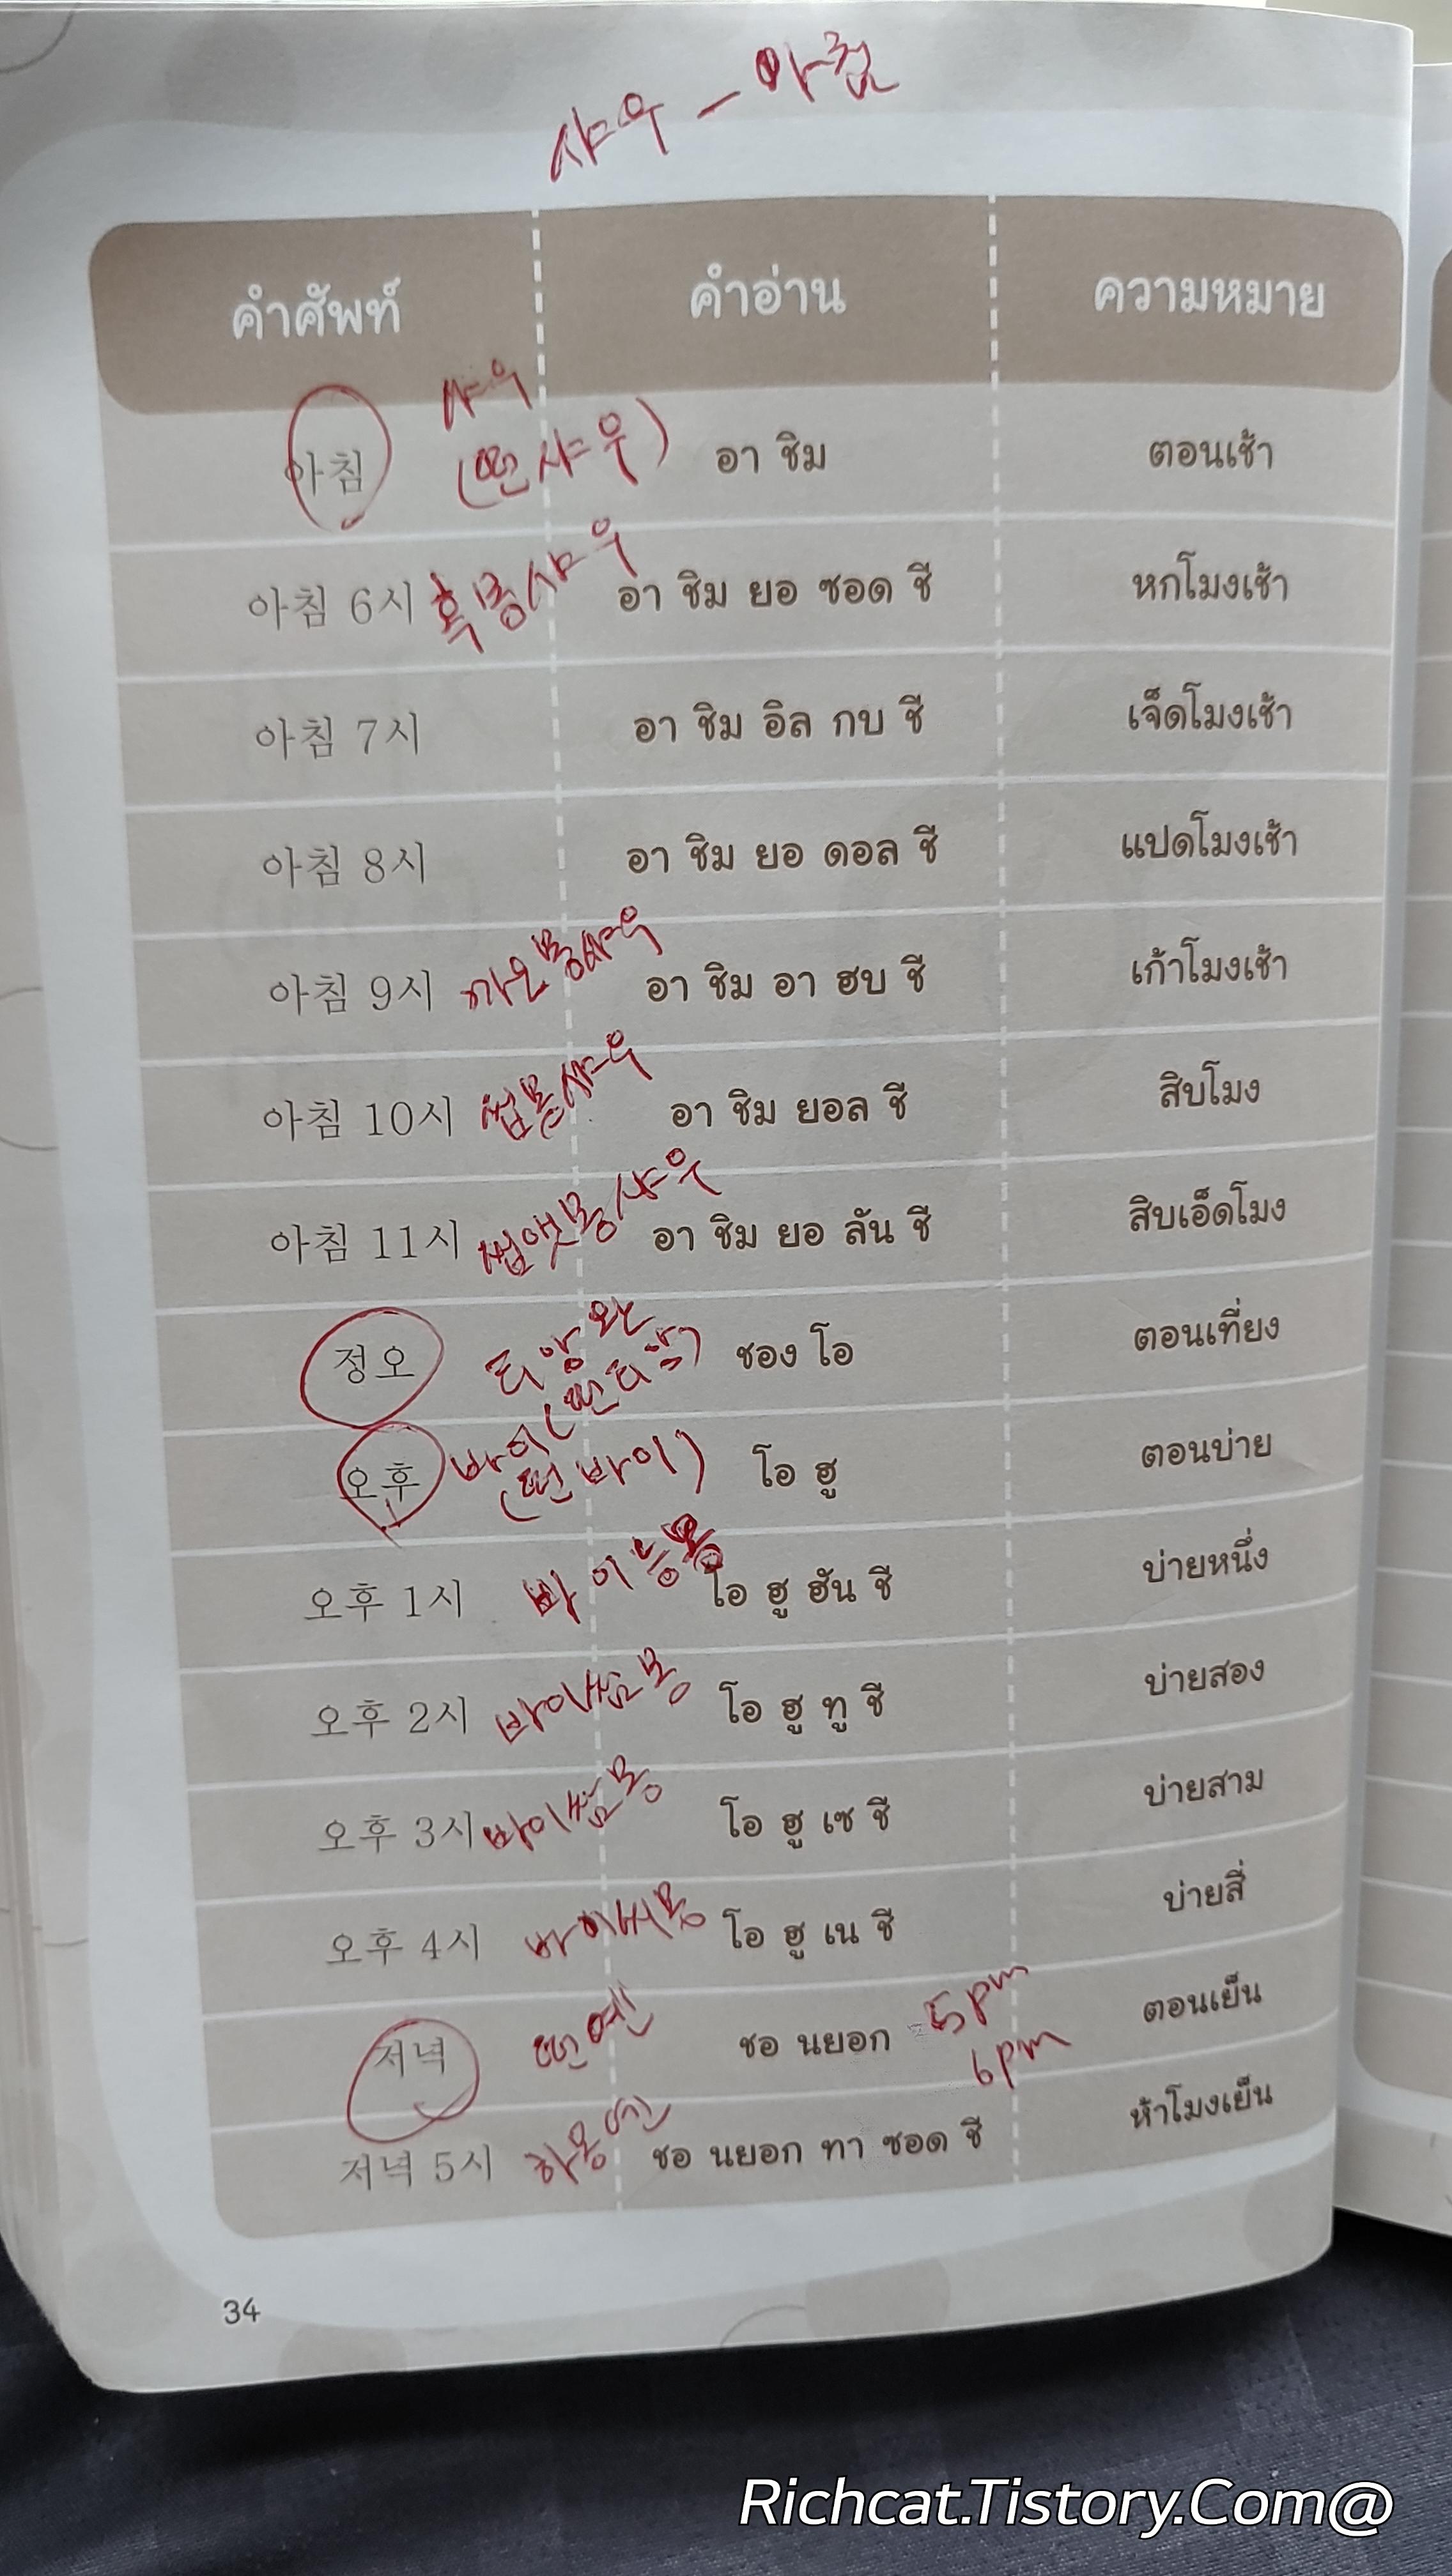 샤우 - 아침
คำศัพท์ คำอ่าน ความหมาย
샤우
아침 (떤 샤우) อา ชิม ตอนเช้า
아침 6시 혹몽샤우 อา ชิม ยอ ซอด ชี หกโมงเช้า
아침 7시 อา ชิม อิล กบ ชี เจ็ดโมงเช้า
아침 8시 อา ชิม ยอ ดอล ชี แปดโมงเช้า
아침 9시 까오몽샤우 อา ชิม อา ฮบ ชี เก้าโมงเช้า
아침 10시 씹몽샤우 อา ชิม ยอล ชี สิบโมง
아침 11시 씹엣몽샤우 อา ชิม ยอ ลัน ชี สิบเอ็ดโมง
정오 ชอง โอ ตอนเที่ยง
오후 바이 (떤 바이) โอ ฮู ตอนบ่าย
오후 1시 바이 능몽 โอ ฮู ฮัน ชี บ่ายหนึ่ง
오후 2시 바이썽몽 โอ ฮู ทู ชี บ่ายสอง
오후 3시 바이쌈몽 โอ ฮู เซ ชี บ่ายสาม
오후 4시 바이씨몽 โอ ฮู เน ชี บ่ายสี่
저녁 떤옌 ชอ นยอก 5pm ตอนเย็น
6pm
저녁 5시 하몽옌 ชอ นยอก ทา ซอด ชี ห้าโมงเย็น
34
Richcat.Tistory.Com@